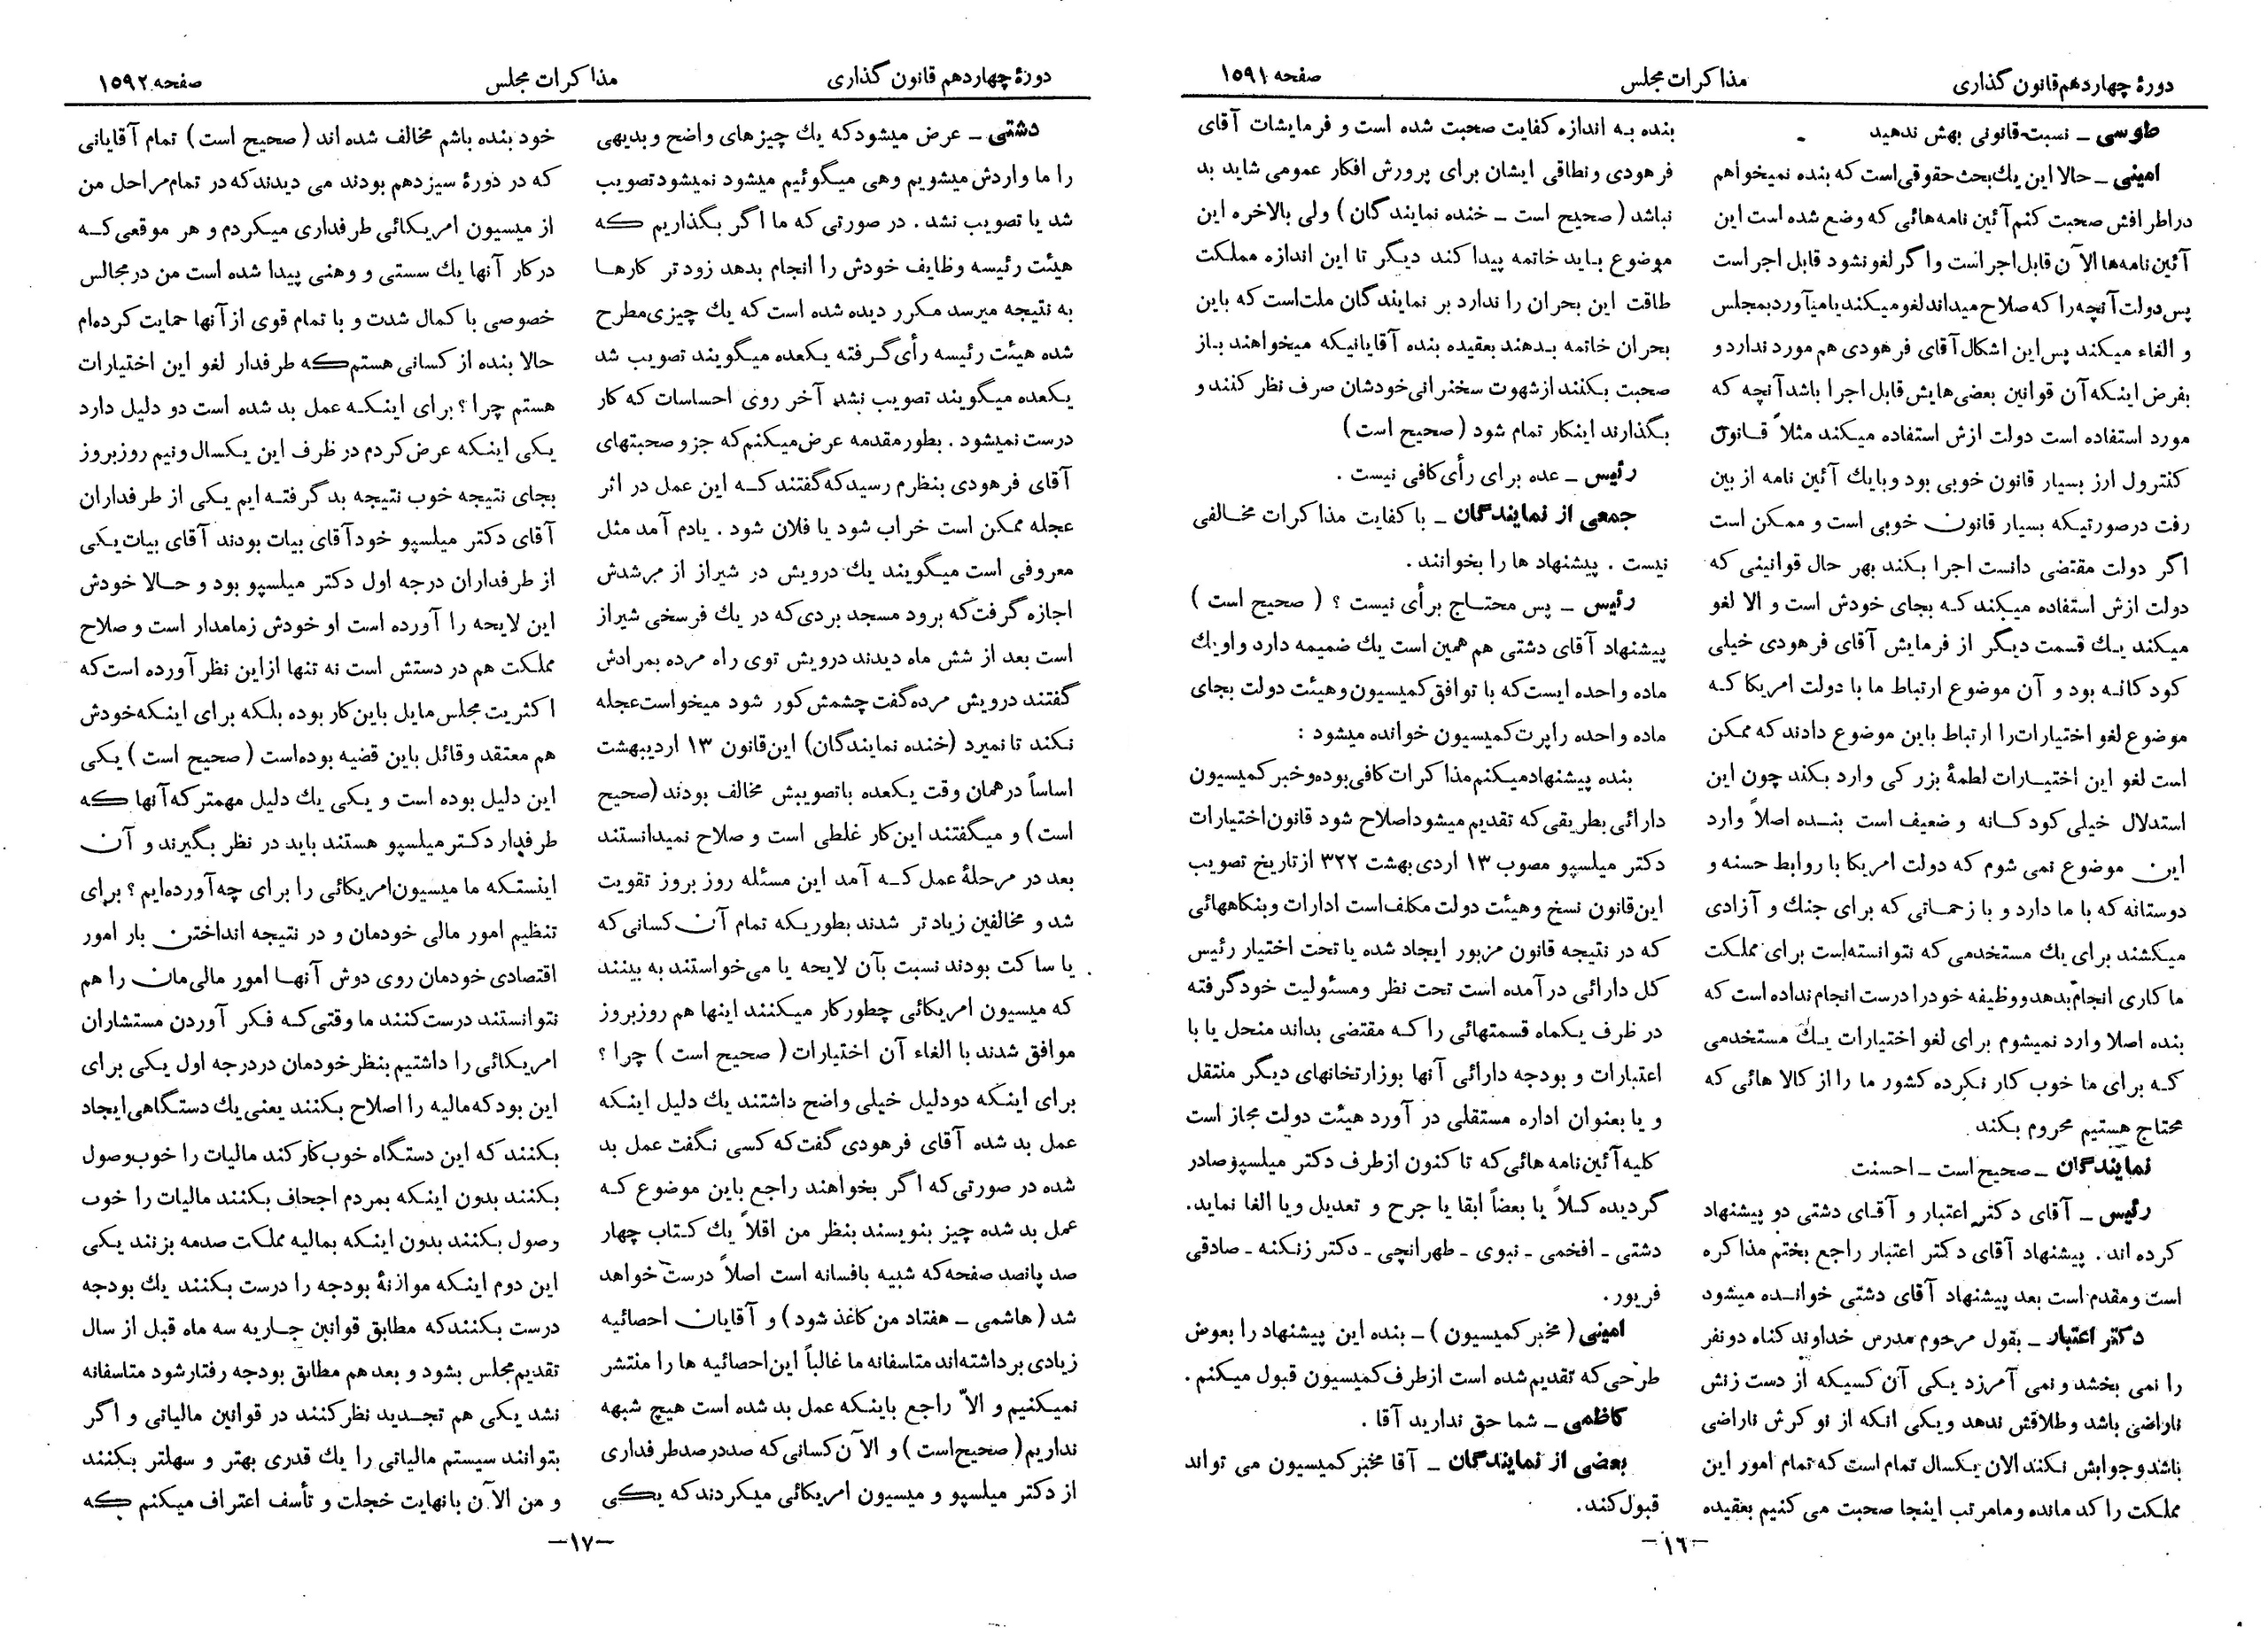 دورهٔ چهاردهم قانون گذاری
مذاکرات مجلس
صفحه ۱۵۹۱
طوسی ــ نسبت قانونی بهش ندهید
امینی ــ حالا این یك بحث حقوقی است که بنده نمیخواهم
در اطرافش صحبت کنم آئین نامه هائی که وضع شده است این
آئین نامه ها الآن قابل اجر است و اگر لغو نشود قابل اجر است
پس دولت آنچه را که صلاح میداند لغو میکند یا میآورد بمجلس
و الغاء میکند پس این اشکال آقای فرهودی هم مورد ندارد و
بفرض اینکه آن قوانین بعضی هایش قابل اجرا باشد آنچه که
مورد استفاده است دولت ازش استفاده میکند مثلاً قانون
کنترول ارز بسیار قانون خوبی بود و بایك آئین نامه از بین
رفت در صورتیکه بسیار قانون خوبی است و ممکن است
اگر دولت مقتضی دانست اجرا بکند بهر حال قوانینی که
دولت ازش استفاده میکند که بجای خودش است و الا لغو
میکند یك قسمت دیگر از فرمایش آقای فرهودی خیلی
کودکانه بود و آن موضوع ارتباط ما با دولت امریکا که
موضوع لغو اختیارات را ارتباط باین موضوع دادند که ممکن
است لغو این اختیارات لطمهٔ بزرگی وارد بکند چون این
استدلال خیلی کودکانه و ضعیف است بنده اصلاً وارد
این موضوع نمی شوم که دولت امریکا با روابط حسنه و
دوستانه که با ما دارد و با زحماتی که برای جنك و آزادی
میکشند برای یك مستخدمی که نتوانسته است برای مملکت
ما کاری انجام بدهد و وظیفه خود را درست انجام نداده است که
بنده اصلا وارد نمیشوم برای لغو اختیارات یك مستخدمی
که برای ما خوب کار نکرده کشور ما را از کالا هائی که
محتاج هستیم محروم بکند.
نمایندگان ــ صحیح است ــ احسنت
رئیس ــ آقای دکتر اعتبار و آقای دشتی دو پیشنهاد
کرده اند. پیشنهاد آقای دکتر اعتبار راجع بختم مذاکره
است و مقدم است بعد پیشنهاد آقای دشتی خوانده میشود
دکتر اعتبار ــ بقول مرحوم مدرس خداوند گناه دو نفر
را نمی بخشد و نمی آمرزد یکی آن کسیکه از دست زنش
ناراضی باشد و طلاقش ندهد و یکی انکه از نوکرش ناراضی
باشد و جوابش نکند الان یکسال تمام است که تمام امور این
مملکت را کد مانده و ما مرتب اینجا صحبت می کنیم بعقیده
بنده به اندازه کفایت صحبت شده است و فرمایشات آقای
فرهودی و نطاقی ایشان برای پرورش افکار عمومی شاید بد
نباشد (صحیح است ــ خنده نمایندگان) ولی بالاخره این
موضوع باید خاتمه پیدا کند دیگر تا این اندازه مملکت
طاقت این بحران را ندارد بر نمایندگان ملت است که باین
بحران خاتمه بدهند بعقیده بنده آقایانیکه میخواهند باز
صحبت بکنند از شهوت سخنرانی خودشان صرف نظر کنند و
بگذارند اینکار تمام شود (صحیح است)
رئیس ــ عده برای رأی کافی نیست.
جمعی از نمایندگان ــ با کفایت مذاکرات مخالفی
نیست. پیشنهاد ها را بخوانند.
رئیس ــ پس محتاج برأی نیست؟ (صحیح است)
پیشنهاد آقای دشتی هم همین است یك ضمیمه دارد و او یك
ماده واحده ایست که با توافق کمیسیون و هیئت دولت بجای
ماده واحده راپرت کمیسیون خوانده میشود:
بنده پیشنهاد میکنم مذاکرات کافی بوده و خبر کمیسیون
دارائی بطریقی که تقدیم میشود اصلاح شود قانون اختیارات
دکتر میلسپو مصوب ۱۳ اردی بهشت ۳۲۲ از تاریخ تصویب
این قانون نسخ و هیئت دولت مکلف است ادارات و بنگاههائی
که در نتیجه قانون مزبور ایجاد شده یا تحت اختیار رئیس
کل دارائی در آمده است تحت نظر و مسئولیت خود گرفته
در ظرف یکماه قسمتهائی را که مقتضی بداند منحل یا با
اعتبارات و بودجه دارائی آنها بوزارتخانهای دیگر منتقل
و یا بعنوان اداره مستقلی در آورد هیئت دولت مجاز است
کلیه آئین نامه هائی که تا کنون از طرف دکتر میلسپو صادر
گردیده کلاً یا بعضاً ابقا یا جرح و تعدیل و یا الغا نماید.
دشتی ـ افخمی ـ نبوی ـ طهرانچی ـ دکتر زنگنه ـ صادقی
فریور.
امینی (مخبر کمیسیون) ــ بنده این پیشنهاد را بعوض
طرحی که تقدیم شده است از طرف کمیسیون قبول میکنم.
کاظمی ــ شما حق ندارید آقا.
بعضی از نمایندگان ــ آقا مخبر کمیسیون می تواند
قبول کند.
ـ۱٦ـ
دورهٔ چهاردهم قانون گذاری
مذاکرات مجلس
صفحه ۱۵۹۲
دشتی ــ عرض میشود که یك چیزهای واضح و بدیهی
را ما واردش میشویم و هی میگوئیم میشود نمیشود تصویب
شد یا تصویب نشد. در صورتی که ما اگر بگذاریم که
هیئت رئیسه وظایف خودش را انجام بدهد زودتر کارها
به نتیجه میرسد مکرر دیده شده است که یك چیزی مطرح
شده هیئت رئیسه رأی گرفته یکعده میگویند تصویب شد
یکعده میگویند تصویب نشد آخر روی احساسات که کار
درست نمیشود. بطور مقدمه عرض میکنم که جزو صحبتهای
آقای فرهودی بنظرم رسید که گفتند که این عمل در اثر
عجله ممکن است خراب شود یا فلان شود. یادم آمد مثل
معروفی است میگویند یك درویش در شیراز از مرشدش
اجازه گرفت که برود مسجد بردی که در یك فرسخی شیراز
است بعد از شش ماه دیدند درویش توی راه مرده بمرادش
گفتند درویش مرده گفت چشمش کور شود میخواست عجله
نکند تا نمیرد (خنده نمایندگان) این قانون ۱۳ اردیبهشت
اساساً در همان وقت یکعده باتصویبش مخالف بودند (صحیح
است) و میگفتند این کار غلطی است و صلاح نمیدانستند
بعد در مرحلهٔ عمل که آمد این مسئله روز بروز تقویت
شد و مخالفین زیادتر شدند بطوریکه تمام آن کسانی که
یا ساکت بودند نسبت بآن لایحه یا می خواستند به بینند
که میسیون امریکائی چطور کار میکنند اینها هم روز بروز
موافق شدند با الغاء آن اختیارات (صحیح است) چرا؟
برای اینکه دو دلیل خیلی واضح داشتند یك دلیل اینکه
عمل بد شده آقای فرهودی گفت که کسی نگفت عمل بد
شده در صورتی که اگر بخواهند راجع باین موضوع که
عمل بد شده چیز بنویسند بنظر من اقلاً یك کتاب چهار
صد پانصد صفحه که شبیه بافسانه است اصلاً درست خواهد
شد (هاشمی ــ هفتاد من کاغذ شود) و آقایان احصائیه
زیادی برداشته اند متاسفانه ما غالباً این احصائیه ها را منتشر
نمیکنیم و الاّ راجع باینکه عمل بد شده است هیچ شبهه
نداریم (صحیح است) و الآن کسانی که صد در صد طرفداری
از دکتر میلسپو و میسیون امریکائی میکردند که یکی
خود بنده باشم مخالف شده اند (صحیح است) تمام آقایانی
که در دورهٔ سیزدهم بودند می دیدند که در تمام مراحل من
از میسیون امریکائی طرفداری میکردم و هر موقعی که
در کار آنها یك سستی و وهنی پیدا شده است من در مجالس
خصوصی با کمال شدت و با تمام قوی از آنها حمایت کرده ام
حالا بنده از کسانی هستم که طرفدار لغو این اختیارات
هستم چرا؟ برای اینکه عمل بد شده است دو دلیل دارد
یکی اینکه عرض کردم در ظرف این یکسال و نیم روز بروز
بجای نتیجه خوب نتیجه بد گرفته ایم یکی از طرفداران
آقای دکتر میلسپو خود آقای بیات بودند آقای بیات یکی
از طرفداران درجه اول دکتر میلسپو بود و حالا خودش
این لایحه را آورده است او خودش زمامدار است و صلاح
مملکت هم در دستش است نه تنها از این نظر آورده است که
اکثریت مجلس مایل باین کار بوده بلکه برای اینکه خودش
هم معتقد و قائل باین قضیه بوده است (صحیح است) یکی
این دلیل بوده است و یکی یك دلیل مهمتر که آنها که
طرفدار دکتر میلسپو هستند باید در نظر بگیرند و آن
اینستکه ما میسیون امریکائی را برای چه آورده ایم؟ برای
تنظیم امور مالی خودمان و در نتیجه انداختن بار امور
اقتصادی خودمان روی دوش آنها امور مالی مان را هم
نتوانستند درست کنند ما وقتی که فکر آوردن مستشاران
امریکائی را داشتیم بنظر خودمان در درجه اول یکی برای
این بود که مالیه را اصلاح بکنند یعنی یك دستگاهی ایجاد
بکنند که این دستگاه خوب کار کند مالیات را خوب وصول
بکنند بدون اینکه بمردم اجحاف بکنند مالیات را خوب
وصول بکنند بدون اینکه بمالیه مملکت صدمه بزنند یکی
این دوم اینکه موازنهٔ بودجه را درست بکنند یك بودجه
درست بکنند که مطابق قوانین جاریه سه ماه قبل از سال
تقدیم مجلس بشود و بعد هم مطابق بودجه رفتار شود متاسفانه
نشد یکی هم تجدید نظر کنند در قوانین مالیاتی و اگر
بتوانند سیستم مالیاتی را یك قدری بهتر و سهلتر بکنند
و من الآن بانهایت خجلت و تأسف اعتراف میکنم که
ـ۱۷ـ